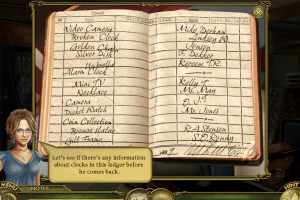 Video Camera
Broken Clock
Golden Chain
Silver Disk
Umbrella
Alarm Clock
Mini TV
Necklace
Camera
Pocket Watch
Coin Collection
Bronze Statue
Gift Frame
Mike Denhan
Lindsey B.
Jenson
F. Dekker
Reece T.R.
Kelly T.
Mr. May
O.J.
Mr. Jones
R.A. Stenson
S.D. Kenny
Let's see if there's any information
about clocks in this ledger before
he comes back.
MENU
NOTES
HINT